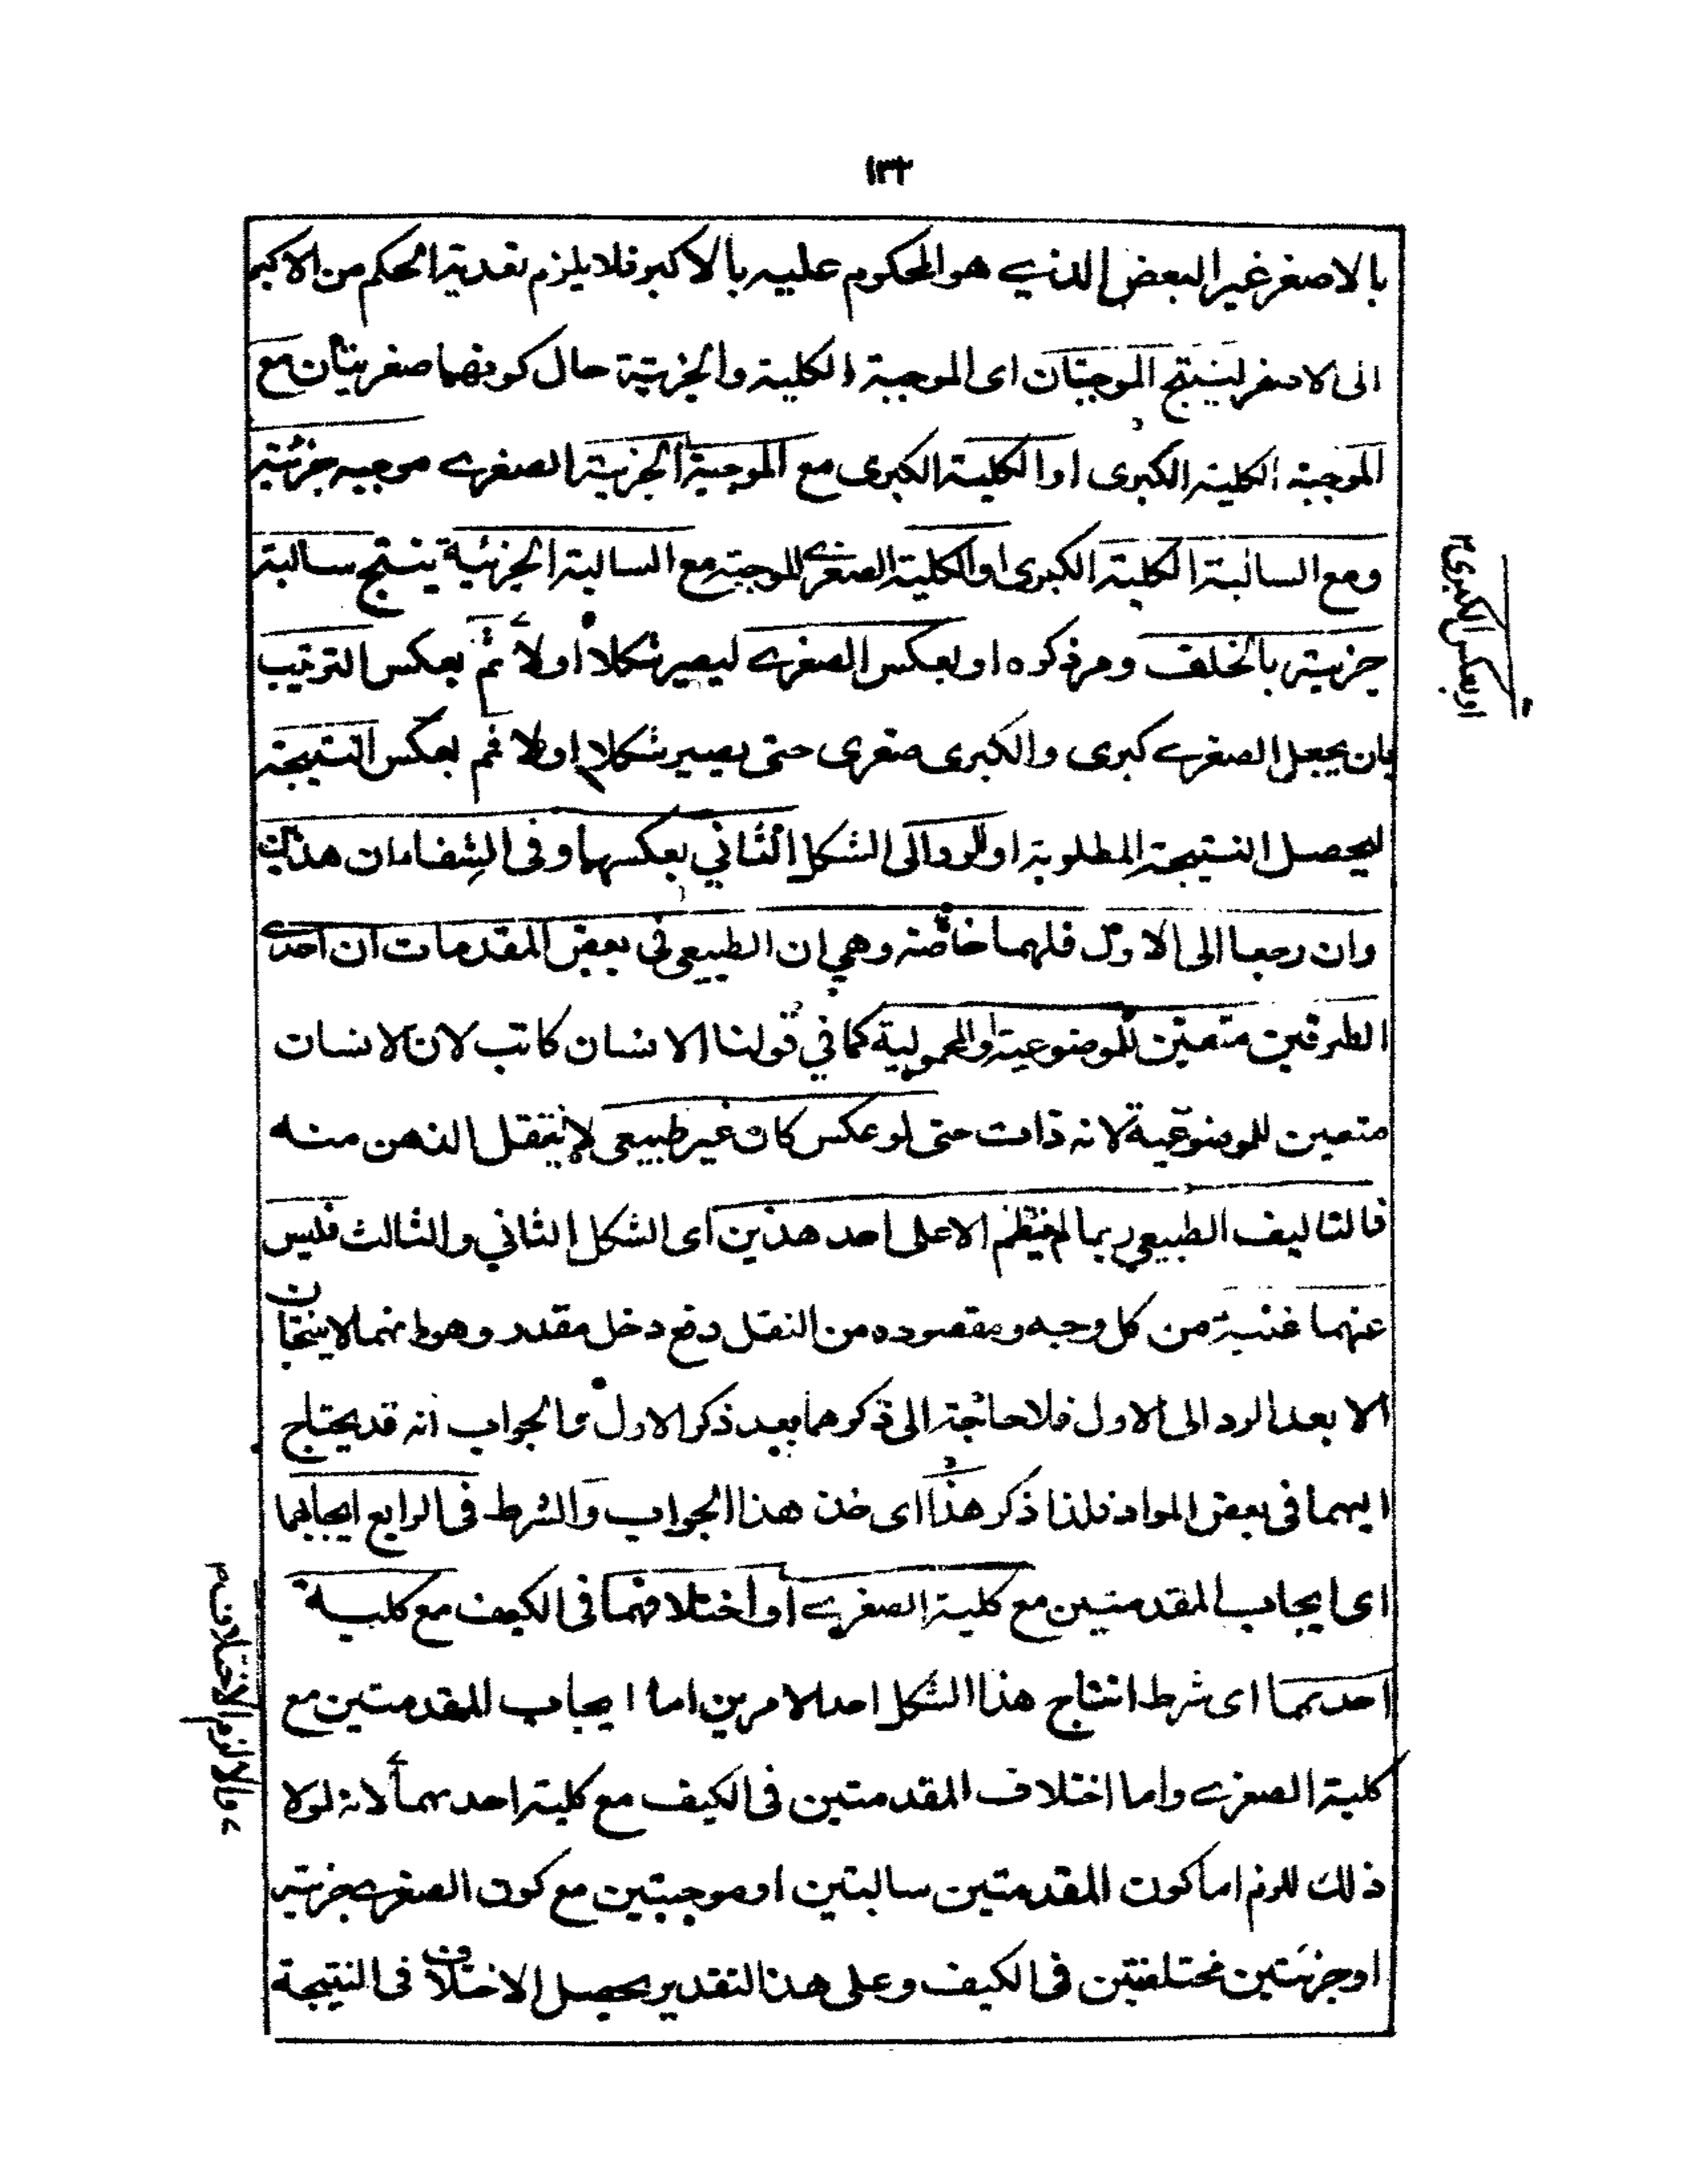 ١٣٢
بالاصغر غير البعض الذي هو المحكوم عليه بالاكبر فلا يلزم تعدية الحكم من الاكبر
الى الاصغر لينتج الموجبتان اى الموجبة الكلية والجزئية حال كونهما صغريتان مع
الموجبة الكلية الكبرى او الكلية الكبرى مع الموجبة الجزئية الصغرے موجبه جزئية
ومع السالبة الكلية الكبرى او الكلية الصغرے الموجبة مع السالبة الجزئية ينتج سالبة
جزئية بالخلف ومر ذكره او بعكس الصغرے ليصير شكلا اولا ثم بعكس الترتيب
بان يجعل الصغرے كبرى والكبرى صغرى حتى يصير شكلا اولا ثم بعكس النتيجة
ليحصل النتيجة المطلوبة او الرد الى الشكل الثاني بعكسهما وفى الشفاء ان هذين
وان رجعا الى الاول فلهما خاصة وهي ان الطبيعى في بعض المقدمات ان احدى
الطرفين متعين للموضوعية والمحمولية كما في قولنا الانسان كاتب لان الانسان
متعين للموضوعية لانه ذات حتى لو عكس كان غير طبيعى لا ينتقل الذهن منه
فالتاليف الطبيعي ربما لم ينتظم الا على احد هذين اى الشكل الثاني والثالث فليس
عنهما غنية من كل وجه ومقصوده من النقل دفع دخل مقدر وهو انهما لا ينتجان
الا بعد الرد الى الاول فلا حاجة الى ذكرهما بعد ذكر الاول والجواب انه قد يحتاج
اليهما فى بعض المواد فلذا ذكر هذا اى خذ هذا الجواب والشرط فى الرابع ايجابهما
اى ايجاب المقدمتين مع كلية الصغرے او اختلافهما فى الكيف مع كلية
احدىهما اى شرط انتاج هذا الشكل احد الامرين اما ايجاب المقدمتين مع
كلية الصغرے واما اختلاف المقدمتين فى الكيف مع كلية احدىهما لانه لولا
ذلك للزم اما كون المقدمتين سالبتين او موجبتين مع كون الصغرے جزئية
او جزئيتين مختلفتين فى الكيف وعلى هذا التقدير يحصل الاختلاف فى النتيجة
او بعكس الكبرى
والا لزم الاختلاف